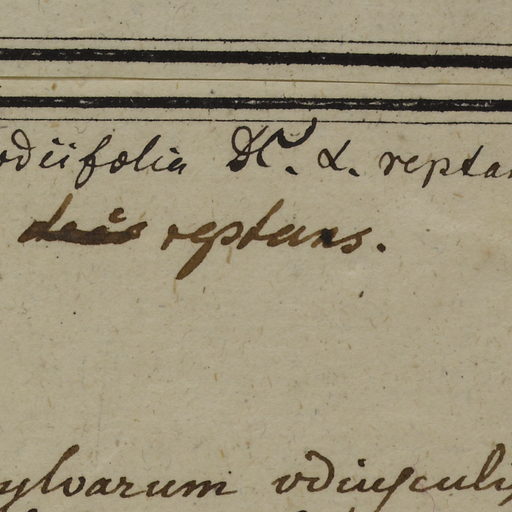 odiifolia DC. α. reptan
reptans.
ylvarum udiusculi